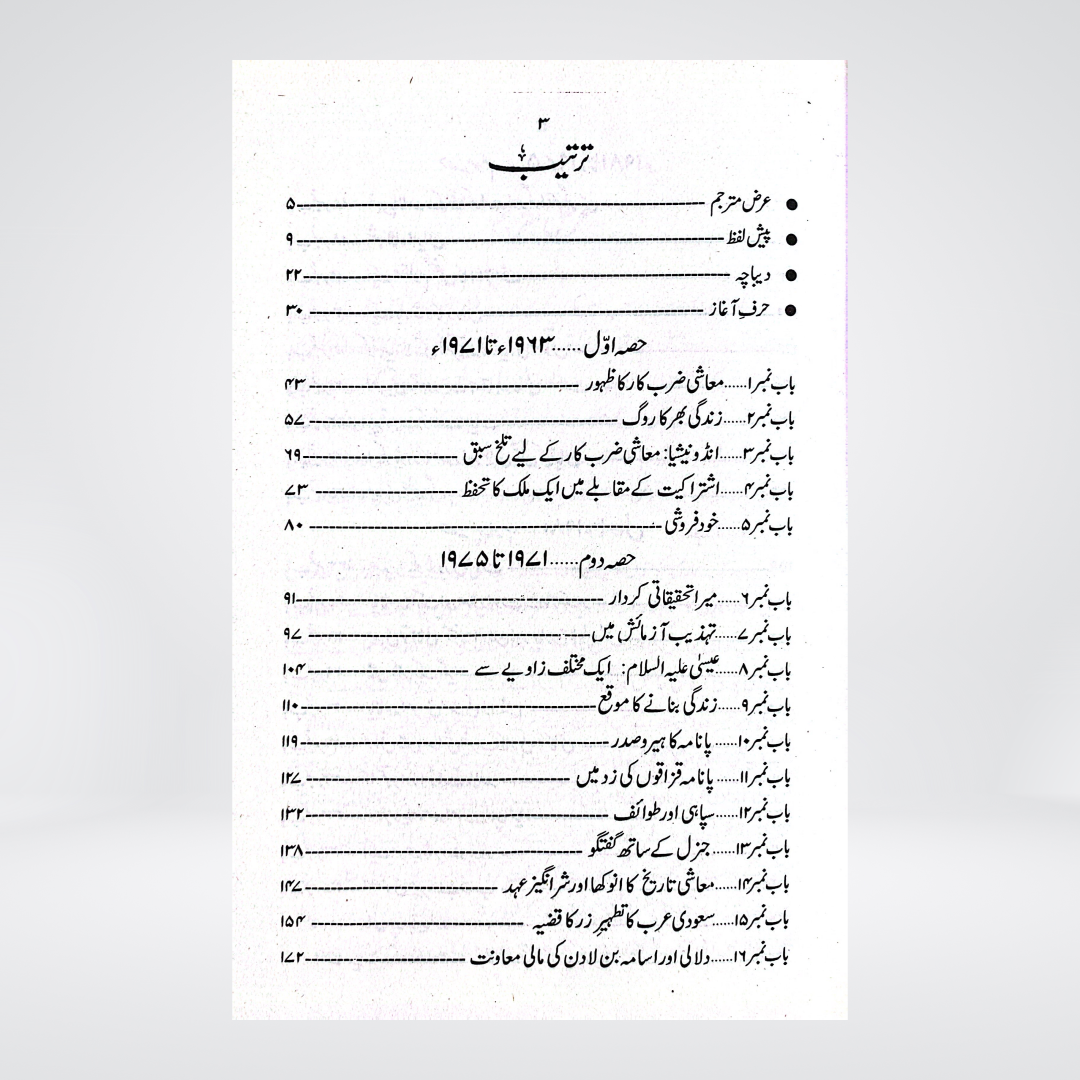 ۳
ترتیب
● عرض مترجم ۵
● پیش لفظ ۹
● دیباچہ ۲۲
● حرفِ آغاز ۳۰
حصہ اوّل......۱۹۶۳ء تا ۱۹۷۱ء
باب نمبر۱......معاشی ضرب کار کا ظہور ۴۳
باب نمبر۲......زندگی بھر کا روگ ۵۷
باب نمبر۳......انڈونیشیا: معاشی ضرب کار کے لیے تلخ سبق ۶۹
باب نمبر۴......اشتراکیت کے مقابلے میں ایک ملک کا تحفظ ۷۳
باب نمبر۵......خود فروشی ۸۰
حصہ دوم......۱۹۷۱ تا ۱۹۷۵
باب نمبر۶......میرا تحقیقاتی کردار ۹۱
باب نمبر۷......تہذیب آزمائش میں ۹۷
باب نمبر۸......عیسیٰ علیہ السلام: ایک مختلف زاویے سے ۱۰۴
باب نمبر۹......زندگی بنانے کا موقع ۱۱۰
باب نمبر۱۰......پانامہ کا ہیرو صدر ۱۱۹
باب نمبر۱۱......پانامہ قزاقوں کی زد میں ۱۲۷
باب نمبر۱۲......سپاہی اور طوائف ۱۳۲
باب نمبر۱۳......جنرل کے ساتھ گفتگو ۱۳۸
باب نمبر۱۴......معاشی تاریخ کا انوکھا اور شرانگیز عہد ۱۴۷
باب نمبر۱۵......سعودی عرب کا تطہیرِ زر کا قضیہ ۱۵۴
باب نمبر۱۶......دلالی اور اسامہ بن لادن کی مالی معاونت ۱۷۲